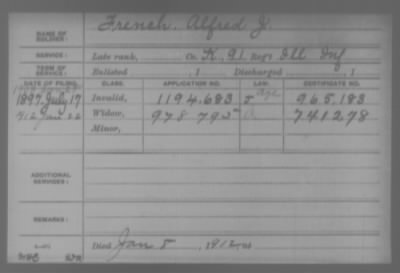 NAME OF SOLDIER: French, Alfred J.
SERVICE: Late rank, Co. K, 91 Reg't Ill Inf
TERM OF SERVICE: Enlisted , 1 Discharged , 1
DATE OF FILING. CLASS. APPLICATION NO. LAW. CERTIFICATE NO.
1897 July 17 Invalid, 1194.683 age 965.183
912 Jan 22 Widow, 978 792 741278
Minor,
ADDITIONAL SERVICES:
REMARKS:
Died Jan 8, 1912,